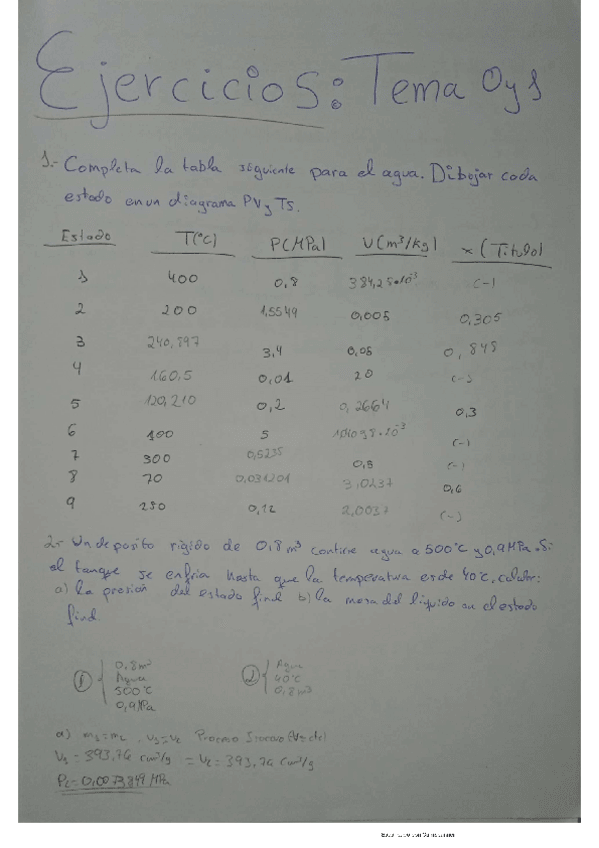 Ejercicios: Tema 0y1
1.- Completa la tabla siguiente para el agua. Dibujar cada
estado en un diagrama PV y TS.
Estado T(ºC) P(MPa) V(m³/kg) x (Titulo)
1 400 0,8 384,28·10⁻³ (-)
2 200 1,5549 0,005 0,305
3 240,897 3,4 0,05 0,848
4 160,5 0,01 20 (-)
5 120,210 0,2 0,2664 0,3
6 100 5 (-)
7 300 0,5235 0,5 (-)
8 70 0,031201 3,0237 0,6
9 250 0,12 2,0037 (-)
2.- Un deposito rigido de 0,8m³ contiene agua a 500ºC y 0,9MPa. Si
el tanque se enfria hasta que la temperatura es de 40ºC, calcular:
a) la presión del estado final b) la masa del liquido en el estado
final
① 0,8m³ ② Agua
Agua 40ºC
500ºC 0,8m³
0,9MPa
a) m₁=m₂ , V₁=V₂ Proceso Isocoro (V=cte)
V₁ = 393,76 cm³/g = V₂ = 393,76 cm³/g
P₂=0,0073849 MPa